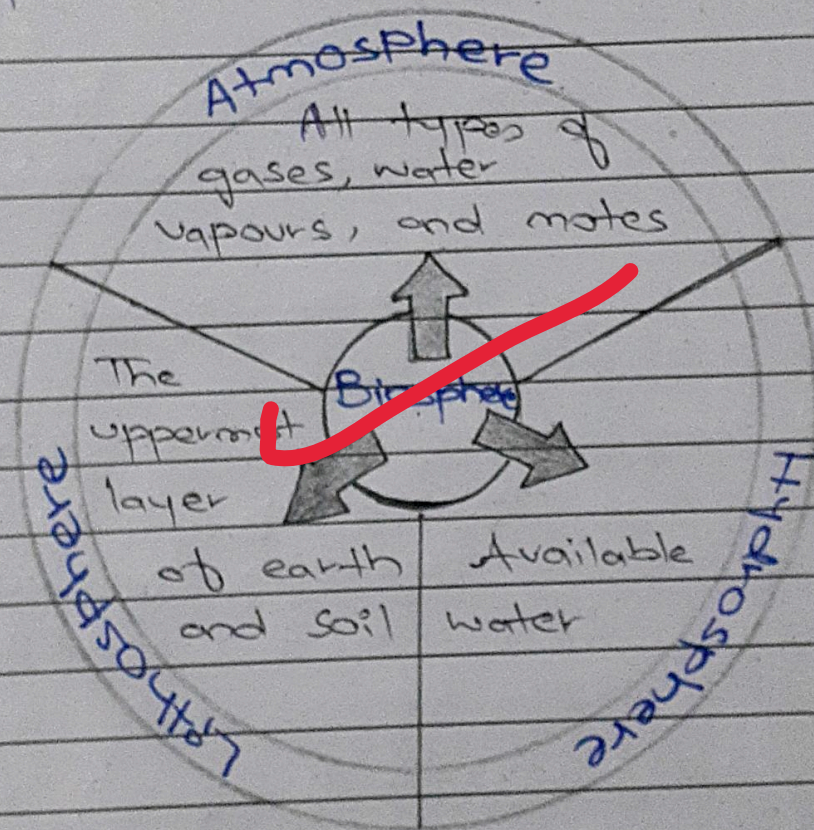 Atmosphere
All types of
gases, water
vapours, and motes
Biosphere
The
uppermost
layer
of earth
and soil
Available
water
Lithosphere
Hydrosphere